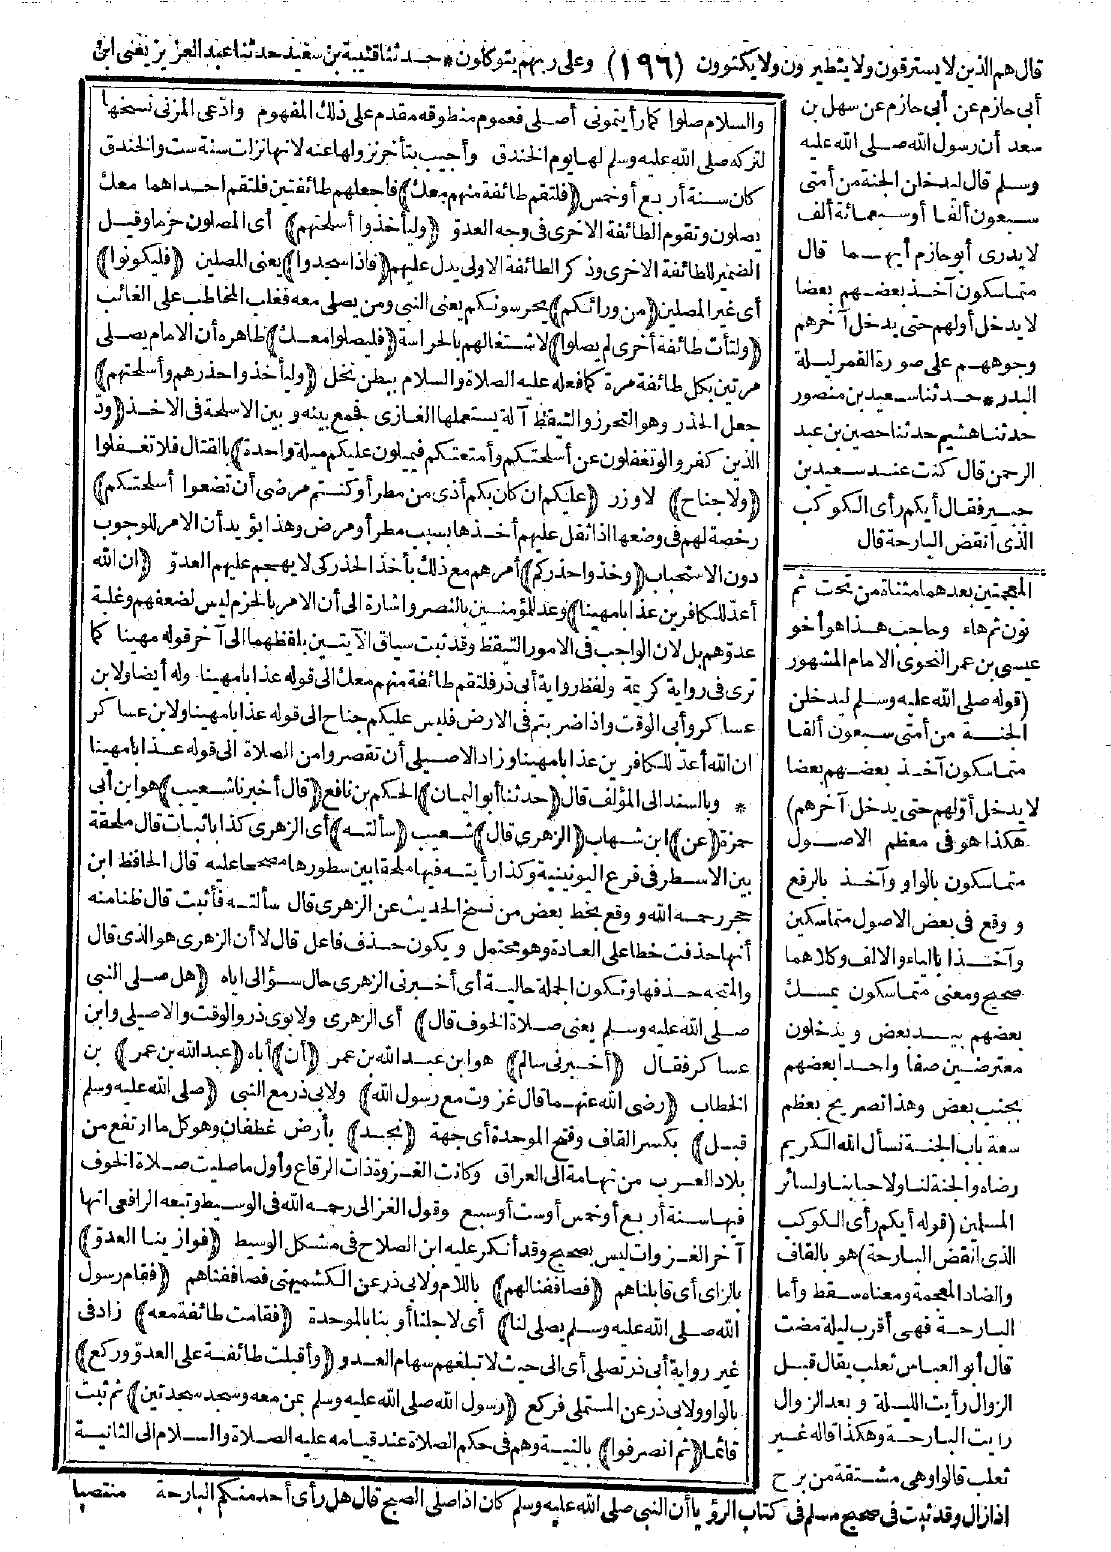 قال هم الذين لا يسترقون ولا يتطيرون ولا يكتوون (١٩٦) وعلى ربهم يتوكلون * حدثنا قتيبة بن سعيد حدثنا عبد العزيز يعنى ابن
أبى حازم عن أبى حازم عن سهل بن
سعد أن رسول الله صلى الله عليه
وسلم قال ليدخلن الجنة من أمتى
سبعون ألفا أو سبعمائة ألف
لا يدرى أبو حازم أيهما قال
متماسكون آخذ بعضهم بعضا
لا يدخل أولهم حتى يدخل آخرهم
وجوههم على صورة القمر ليلة
البدر * حدثنا سعيد بن منصور
حدثنا هشيم حدثنا حصين بن عبد
الرحمن قال كنت عند سعيد بن
جبير فقال أيكم رأى الكوكب
الذى انقض البارحة قال
المهجمتين بعدهما مثناة من تحت ثم
نون ثم هاء وحاجب هذا هو أخو
عيسى بن عمر النحوى الامام المشهور
(قوله صلى الله عليه وسلم ليدخلن
الجنة من أمتى سبعون ألفا
متماسكون آخذ بعضهم بعضا
لا يدخل أولهم حتى يدخل آخرهم)
هكذا هو فى معظم الاصول
متماسكون بالواو وآخذ بالرفع
ووقع فى بعض الاصول متماسكين
وآخذا بالياء والالف وكلاهما
صحيح ومعنى متماسكون ممسك
بعضهم بيد بعض ويدخلون
معترضين صفا واحدا بعضهم
بجنب بعض وهذا تصريح بعظم
سعة باب الجنة نسأل الله الكريم
رضاه والجنة لنا ولاحبابنا ولسائر
المسلمين (قوله أيكم رأى الكوكب
الذى انقض البارحة) هو بالقاف
والضاد المعجمة ومعناه سقط وأما
البارحة فهى أقرب ليلة مضت
قال أبو العباس ثعلب يقال قبل
الزوال رأيت الليلة وبعد الزوال
رايت البارحة وهكذا قاله غير
ثعلب قالوا وهى مشتقة من برح
اذا زال وقد ثبت فى صحيح مسلم فى كتاب الرؤيا أن النبى صلى الله عليه وسلم كان اذا صلى الصبح قال هل رأى أحد منكم البارحة منتصبا
والسلام صلوا كما رأيتمونى أصلى فعموم منطوقه مقدم على ذلك المفهوم وادعى المزنى نسخها
لتركه صلى الله عليه وسلم لها يوم الخندق وأجيب بتأخر نزولها عنه لانها نزلت سنة ست والخندق
كان سنة أربع أو خمس (فلتقم طائفة منهم معك) فاجعلهم طائفتين فلتقم احداهما معك
يصلون وتقوم الطائفة الاخرى فى وجه العدو (وليأخذوا أسلحتهم) أى المصلون حزما وقيل
الضمير للطائفة الاخرى وذكر الطائفة الاولى يدل عليهم (فاذا سجدوا) يعنى المصلين (فليكونوا)
أى غير المصلين (من ورائكم) يحرسونكم يعنى النبى ومن يصلى معه فغلب المخاطب على الغائب
(ولتأت طائفة أخرى لم يصلوا) لاشتغالهم بالحراسة (فليصلوا معك) ظاهره أن الامام يصلى
مرتين بكل طائفة مرة كما فعله عليه الصلاة والسلام ببطن نخل (وليأخذوا حذرهم وأسلحتهم)
جعل الحذر وهو التحرز والتيقظ آلة يستعملها الغازى فجمع بينه وبين الاسلحة فى الاخذ (ود
الذين كفروا لو تغفلون عن أسلحتكم وأمتعتكم فيميلون عليكم ميلة واحدة) بالقتال فلا تغفلوا
(ولا جناح) لا وزر (عليكم ان كان بكم أذى من مطر أو كنتم مرضى أن تضعوا أسلحتكم)
رخصة لهم فى وضعها اذا ثقل عليهم أخذها بسبب مطر أو مرض وهذا يؤيد أن الامر للوجوب
دون الاستحباب (وخذوا حذركم) أمرهم مع ذلك بأخذ الحذر كى لا يهجم عليهم العدو (ان الله
أعد للكافرين عذابا مهينا) وعد للمؤمنين بالنصر واشارة الى أن الامر بالحزم ليس لضعفهم وغلبة
عدوهم بل لان الواجب فى الامور التيقظ وقد ثبت سياق الآيتين بلفظهما الى آخر قوله مهينا كما
ترى فى رواية كريمة ولفظ رواية أبى ذر فلتقم طائفة منهم معك الى قوله عذابا مهينا وله أيضا ولابن
عساكر وأبى الوقت واذا ضربتم فى الارض فليس عليكم جناح الى قوله عذابا مهينا ولابن عساكر
ان الله أعد للكافرين عذابا مهينا وزاد الاصيلى أن تقصروا من الصلاة الى قوله عذابا مهينا
* وبالسند الى المؤلف قال (حدثنا أبو اليمان) الحكم بن نافع (قال أخبرنا شعيب) هو ابن أبى
حمزة (عن) ابن شهاب (الزهرى قال) شعيب (سألته) أى الزهرى كذا باثبات قال ملحقة
بين الاسطر فى فرع اليونينية وكذا رأيته فيها ملحقا بين سطورها مصححا عليه قال الحافظ ابن
حجر رحمه الله ووقع بخط بعض من نسخ الحديث عن الزهرى قال سألته فأثبت قال ظنا منه
أنها حذفت خطأ على العادة وهو محتمل ويكون حذف فاعل قال لا أن الزهرى هو الذى قال
والمتجه حذفها وتكون الجملة حالية أى أخبرنى الزهرى حال سؤالى اياه (هل صلى النبى
صلى الله عليه وسلم يعنى صلاة الخوف قال) أى الزهرى ولابوى ذر والوقت والاصيلى وابن
عساكر فقال (أخبرنى سالم) هو ابن عبد الله بن عمر (أن) أباه (عبد الله بن عمر) بن
الخطاب (رضى الله عنهما قال غزوت مع رسول الله) ولابى ذر مع النبى (صلى الله عليه وسلم
قبل) بكسر القاف وفتح الموحدة أى جهة (نجد) بأرض غطفان وهو كل ما ارتفع من
بلاد العرب من تهامة الى العراق وكانت الغزوة ذات الرقاع وأول ما صليت صلاة الخوف
فيها سنة أربع أو خمس أو ست أو سبع وقول الغزالى رحمه الله فى الوسيط وتبعه الرافعى انها
آخر الغزوات ليس بصحيح وقد أنكر عليه ابن الصلاح فى مشكل الوسيط (فوازينا العدو)
بالزاى أى قابلناهم (فصاففنا لهم) باللام ولابى ذر عن الكشميهنى فصاففناهم (فقام رسول
الله صلى الله عليه وسلم يصلى لنا) أى لاجلنا أو بنا بالموحدة (فقامت طائفة معه) زاد فى
غير رواية أبى ذر تصلى أى الى حيث لا تبلغهم سهام العدو (وأقبلت طائفة على العدو وركع)
بالواو ولابى ذر عن المستملى فركع (رسول الله صلى الله عليه وسلم بمن معه وسجد سجدتين) ثم ثبت
قائما (ثم انصرفوا) بالنية وهم فى حكم الصلاة عند قيامه عليه الصلاة والسلام الى الثانية